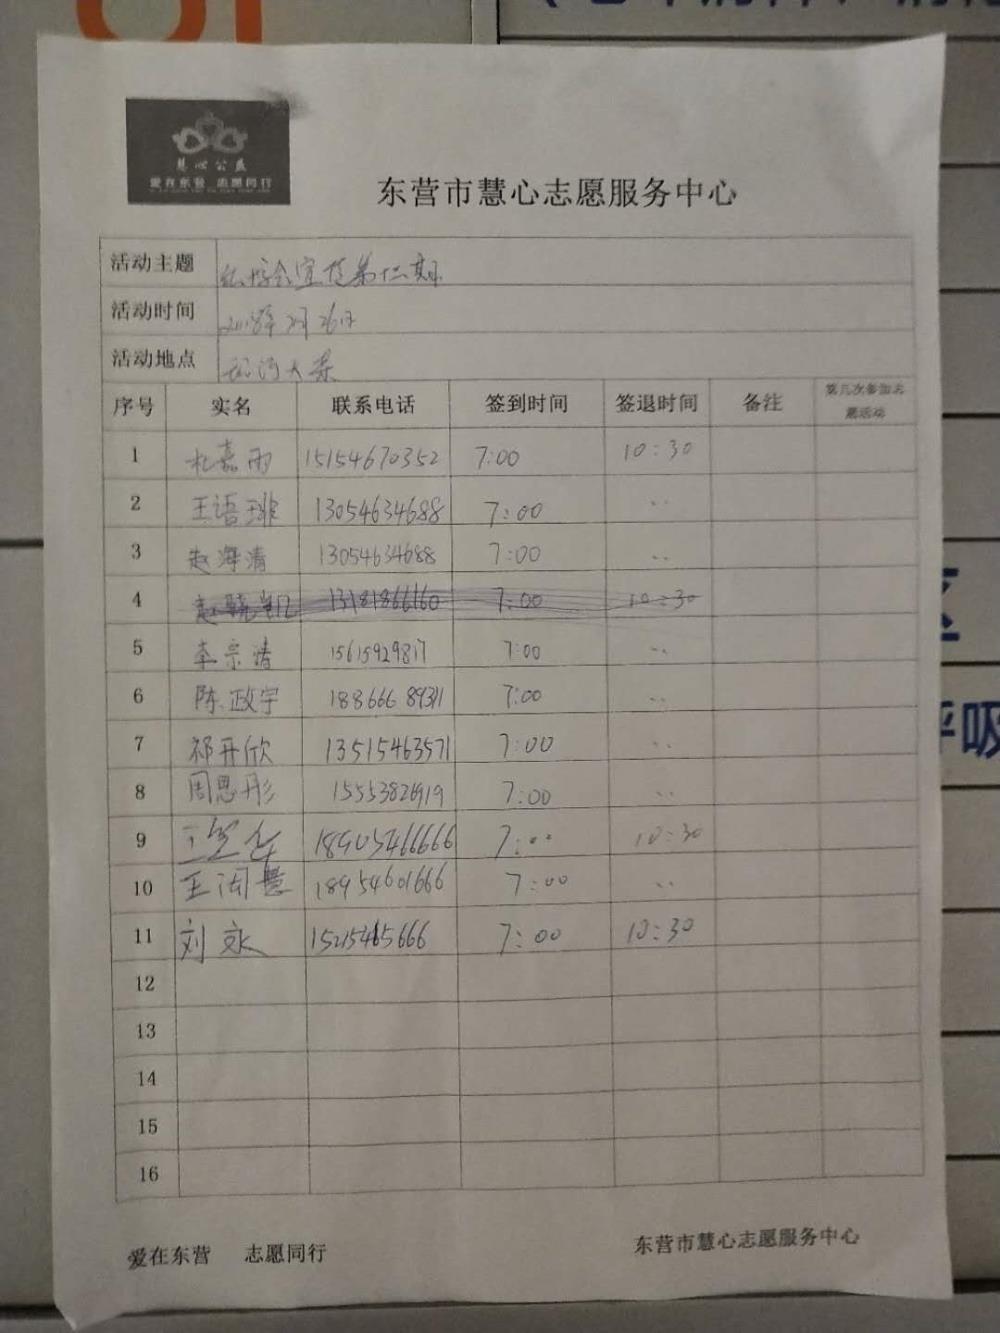 慧心公益
爱在东营 志愿同行
东营市慧心志愿服务中心
活动主题 第十二期
活动时间 2018年 月26日
活动地点
序号 实名 联系电话 签到时间 签退时间 备注 第几次参加志愿活动
1 杜嘉雨 15154670352 7:00 10:30
2 王语琲 13054634688 7:00 ..
3 赵海清 13054634688 7:00 ..
4 赵晓凯 13181866160 7:00 10:30
5 李宗清 15615929817 7:00 ..
6 陈政宇 18866689311 7:00 ..
7 祁开欣 13515463571 7:00 ..
8 周恩彤 15553826919 7:00 ..
9 18905466666 7:00 10:30
10 王闰慧 18954601666 7:00 ..
11 刘永 15215465666 7:00 10:30
12
13
14
15
16
爱在东营 志愿同行 东营市慧心志愿服务中心
呼吸